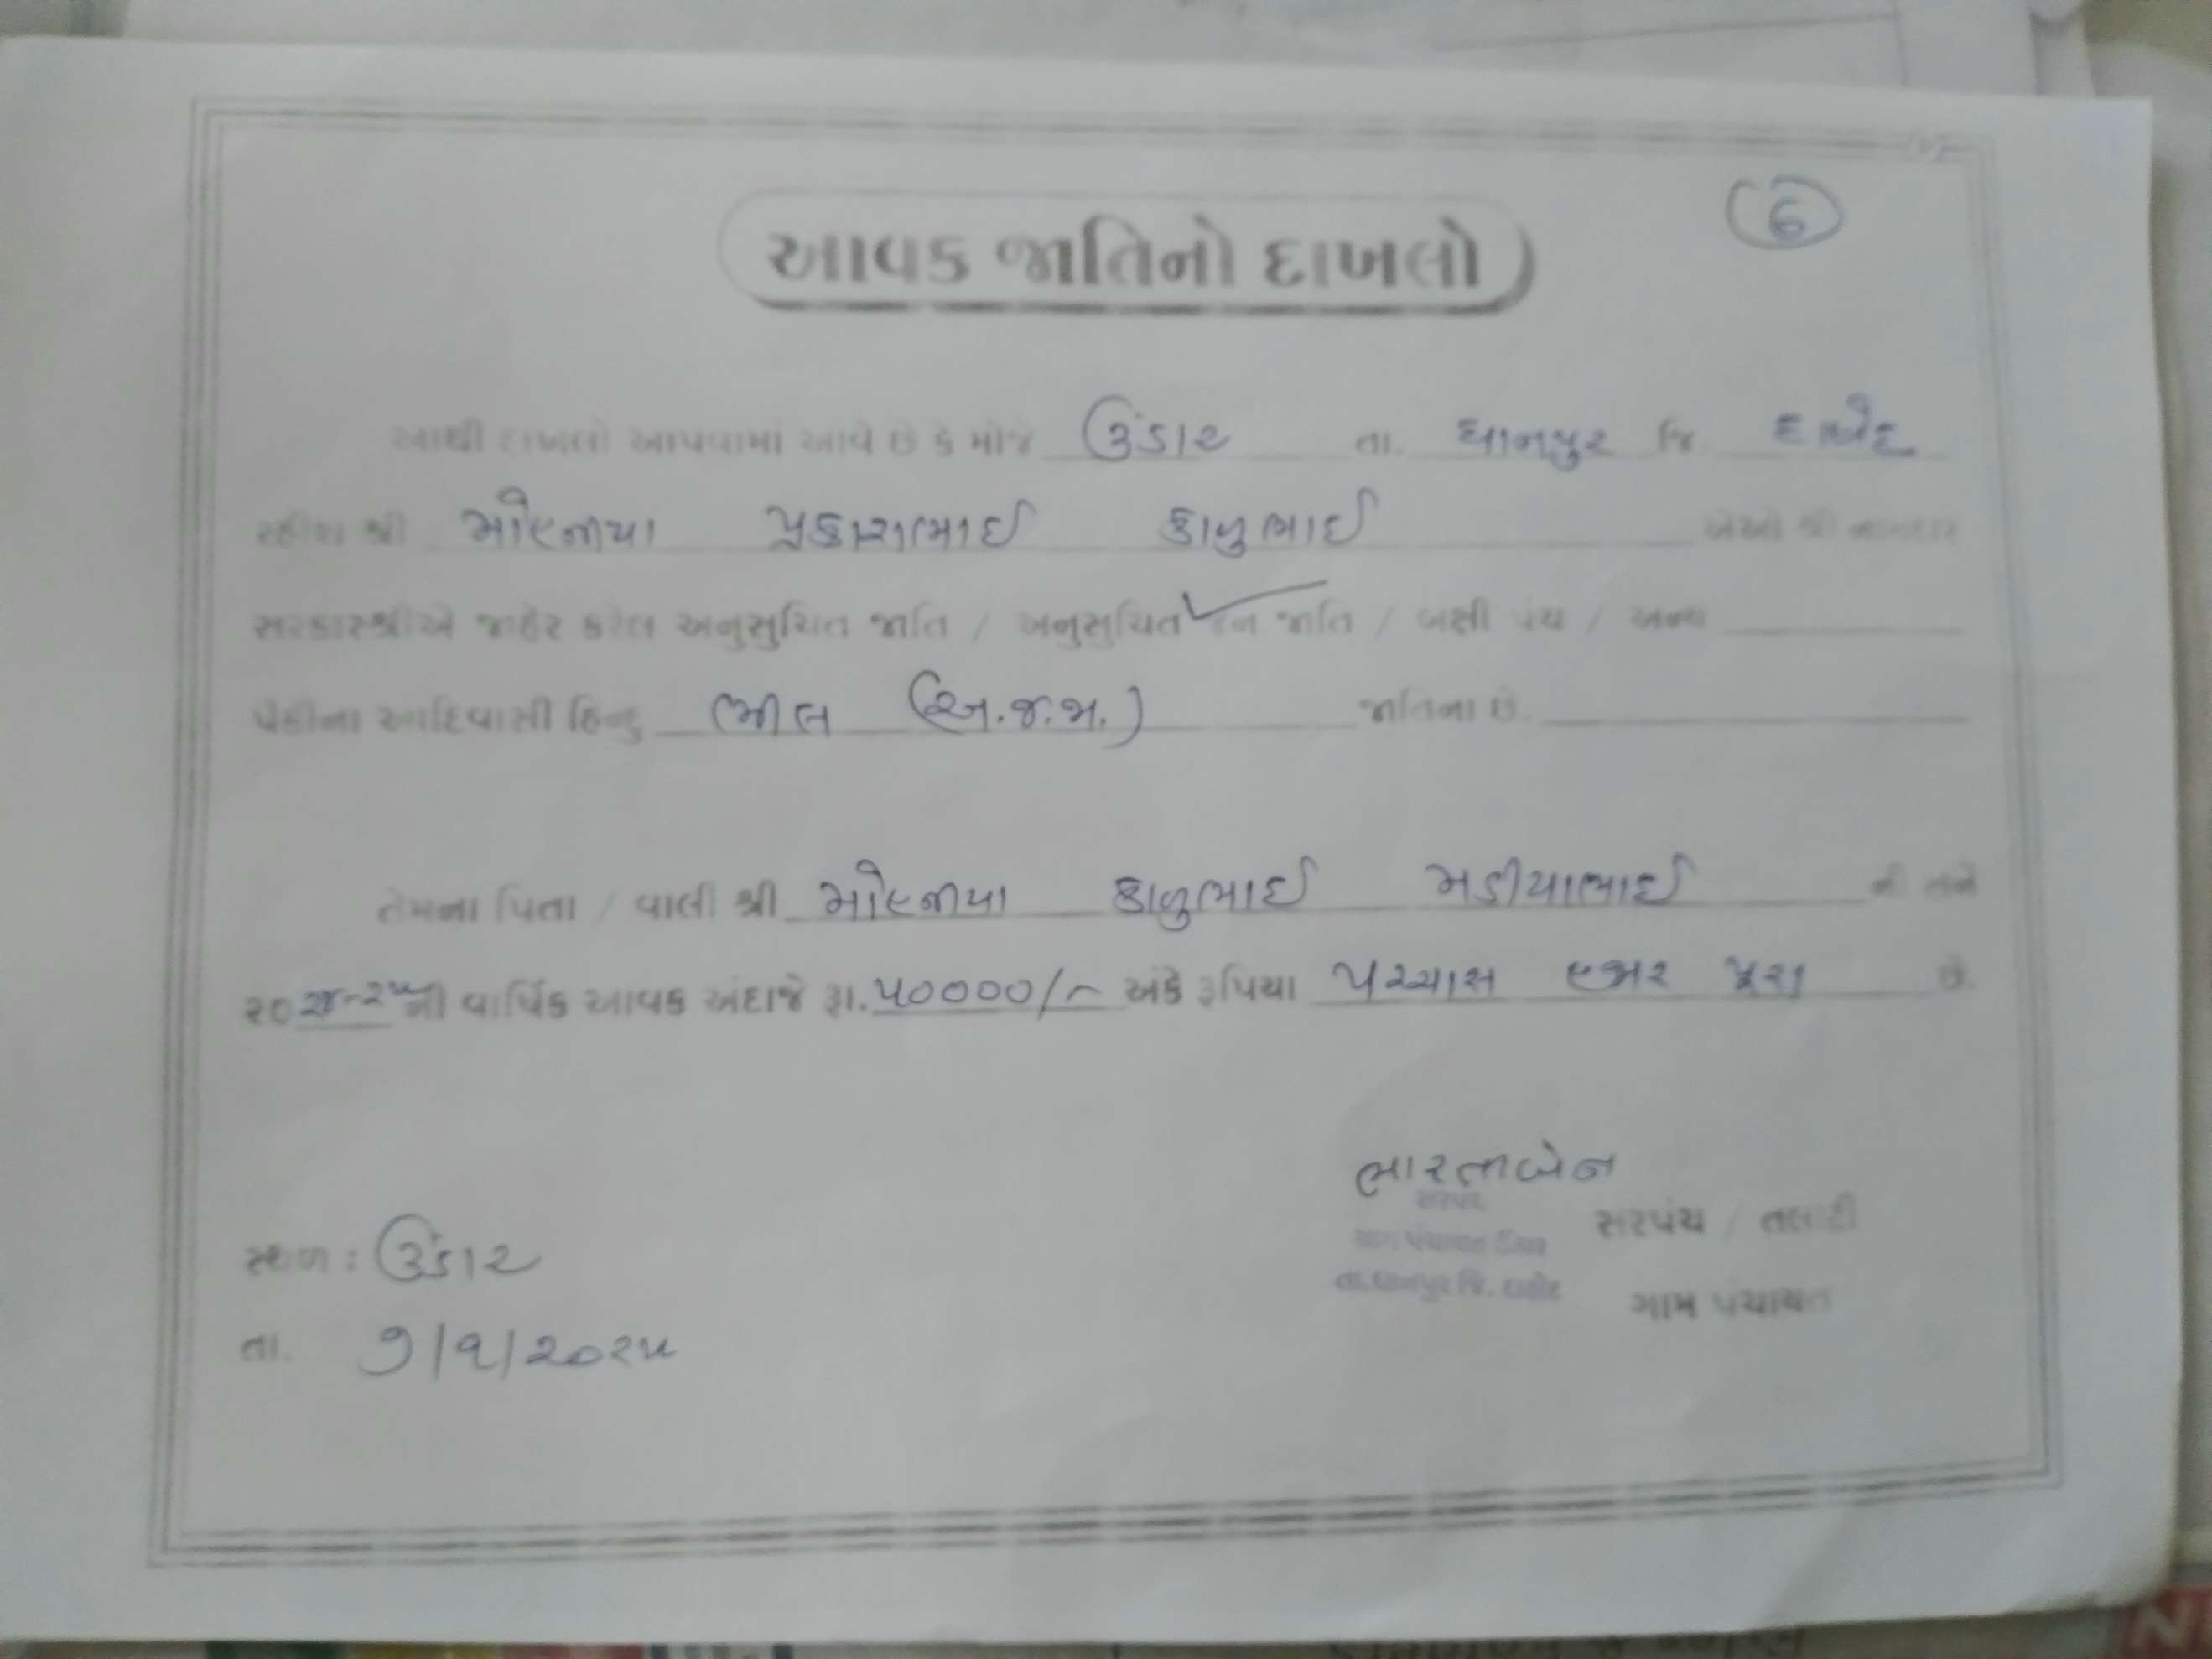 ૬
આવક જાતિનો દાખલો
આથી દાખલો આપવામાં આવે છે કે મોજે ઉંડાર તા. ધાનપુર જિ દાહોદ
રહીશ શ્રી મોહનીયા પ્રકાશભાઈ કાળુભાઈ જેઓ શ્રી નામદાર
સરકારશ્રીએ જાહેર કરેલ અનુસુચિત જાતિ / અનુસુચિત જન જાતિ / બક્ષી પંચ / અન્ય
પૈકીના આદિવાસી હિન્દુ ભીલ (અ.જ.જા.) જાતિના છે.
તેમના પિતા / વાલી શ્રી મોહનીયા કાળુભાઈ મડીયાભાઈ ની સને
૨૦૨૪-૨૫ ની વાર્ષિક આવક અંદાજે રૂા. ૫૦૦૦૦/- અંકે રૂપિયા પચ્ચાસ હજાર પૂરા છે.
ભારતાબેન
સરપંચ
સરપંચ / તલાટી
ગ્રામ પંચાયત ઉંડાર
તા.ધાનપુર જિ. દાહોદ
ગ્રામ પંચાયત
સ્થળ : ઉંડાર
તા. ૭/૧/૨૦૨૫